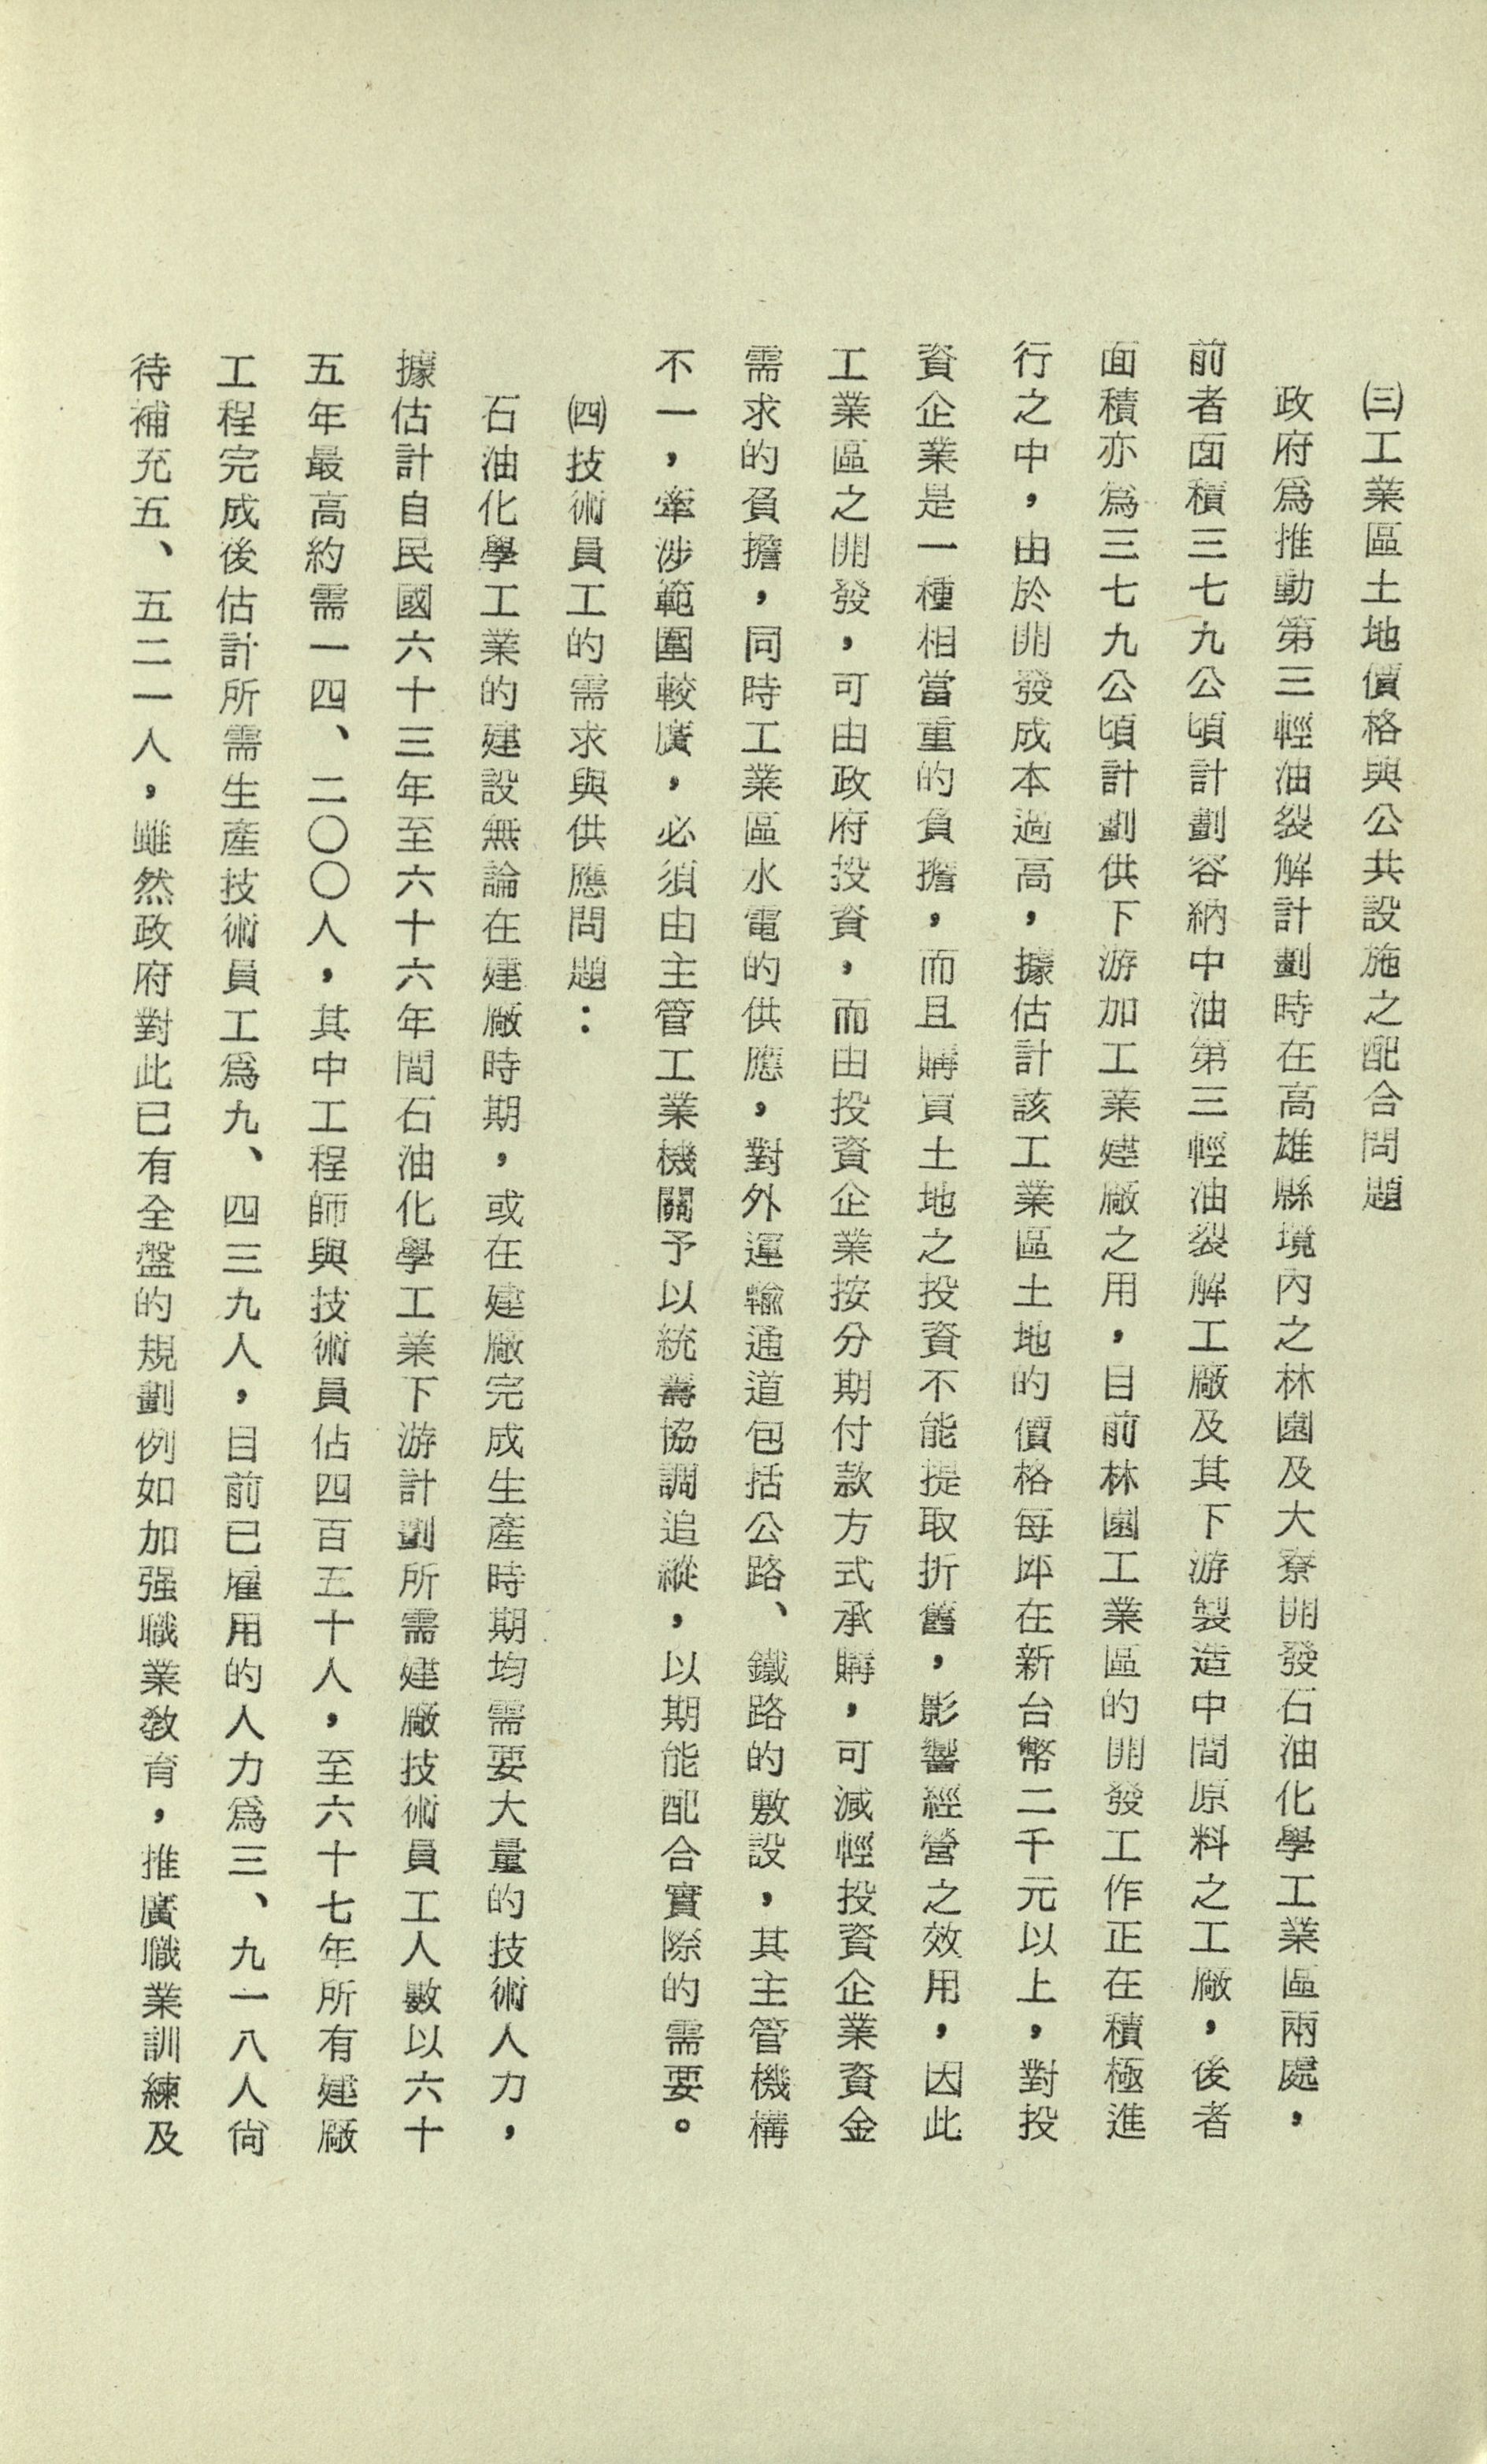 ㈢工業區土地價格與公共設施之配合問題
政府為推動第三輕油裂解計劃時在高雄縣境內之林園及大寮開發石油化學工業區兩處，
前者面積三七九公頃計劃容納中油第三輕油裂解工廠及其下游製造中間原料之工廠，後者
面積亦為三七九公頃計劃供下游加工業建廠之用，目前林園工業區的開發工作正在積極進
行之中，由於開發成本過高，據估計該工業區土地的價格每坪在新台幣二千元以上，對投
資企業是一種相當重的負擔，而且購買土地之投資不能提取折舊，影響經營之效用，因此
工業區之開發，可由政府投資，而由投資企業按分期付款方式承購，可減輕投資企業資金
需求的負擔，同時工業區水電的供應，對外運輸通道包括公路、鐵路的敷設，其主管機構
不一，牽涉範圍較廣，必須由主管工業機關予以統籌協調追縱，以期能配合實際的需要。
㈣技術員工的需求與供應問題：
石油化學工業的建設無論在建廠時期，或在建廠完成生產時期均需要大量的技術人力，
據估計自民國六十三年至六十六年間石油化學工業下游計劃所需建廠技術員工人數以六十
五年最高約需一四、二〇〇人，其中工程師與技術員佔四百五十人，至六十七年所有建廠
工程完成後估計所需生產技術員工為九、四三九人，目前已雇用的人力為三、九一八人尚
待補充五、五二一人，雖然政府對此已有全盤的規劃例如加强職業教育，推廣職業訓練及